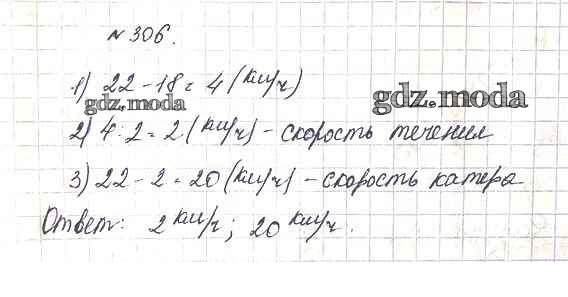 № 306.
1) 22 - 18 = 4 (км/ч)
gdz.moda
gdz.moda
2) 4 : 2 = 2 (км/ч) - скорость течения
3) 22 - 2 = 20 (км/ч) - скорость катера
Ответ: 2 км/ч; 20 км/ч.